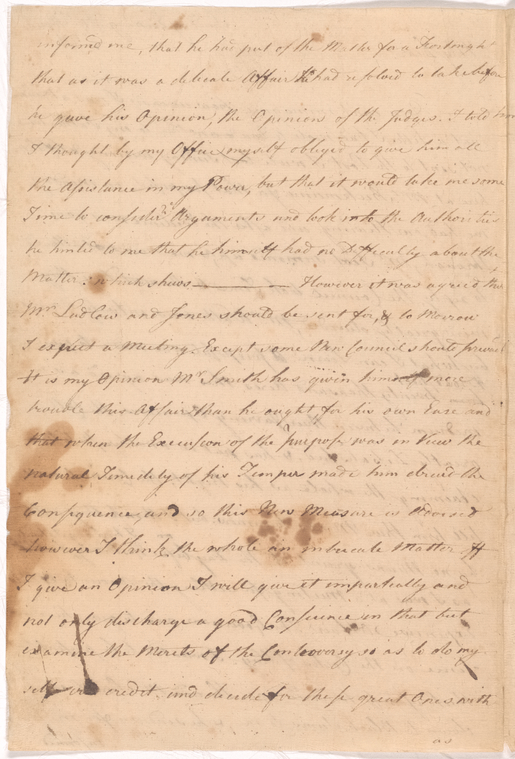 informed me, that he had put of the Matter for a Fortnight
that as it was a delicate Affair he had resolved to take before
he gave his Opinion, the Opinions of the Judges. I told him
I thought by my Office myself obliged to give him all
the Assistance in my Power, but that it would take me some
Time to consider Arguments and look into the Authorities
he hinted to me that he himself had no Difficulty about the
Matter which shews ——— However it was agreed that
Mr. Ludlow and Jones should be sent for, & to Morrow
I expect a Meeting. Except some New Council should prevail
It is my Opinion Mr. Smith has given himself more
trouble this Affair than he ought for his own Ease and
that when the Execution of the purpose was in View the
natural Timedity of his Temper made him dread the
Consequence, and so this New Measure is advised
however I think the whole an intricate Matter If
I give an Opinion I will give it impartially and
not only discharge a good Conscience in that but
examine the Merits of the Controversy so as to do my
self credit, and decide for these great Ones with
as